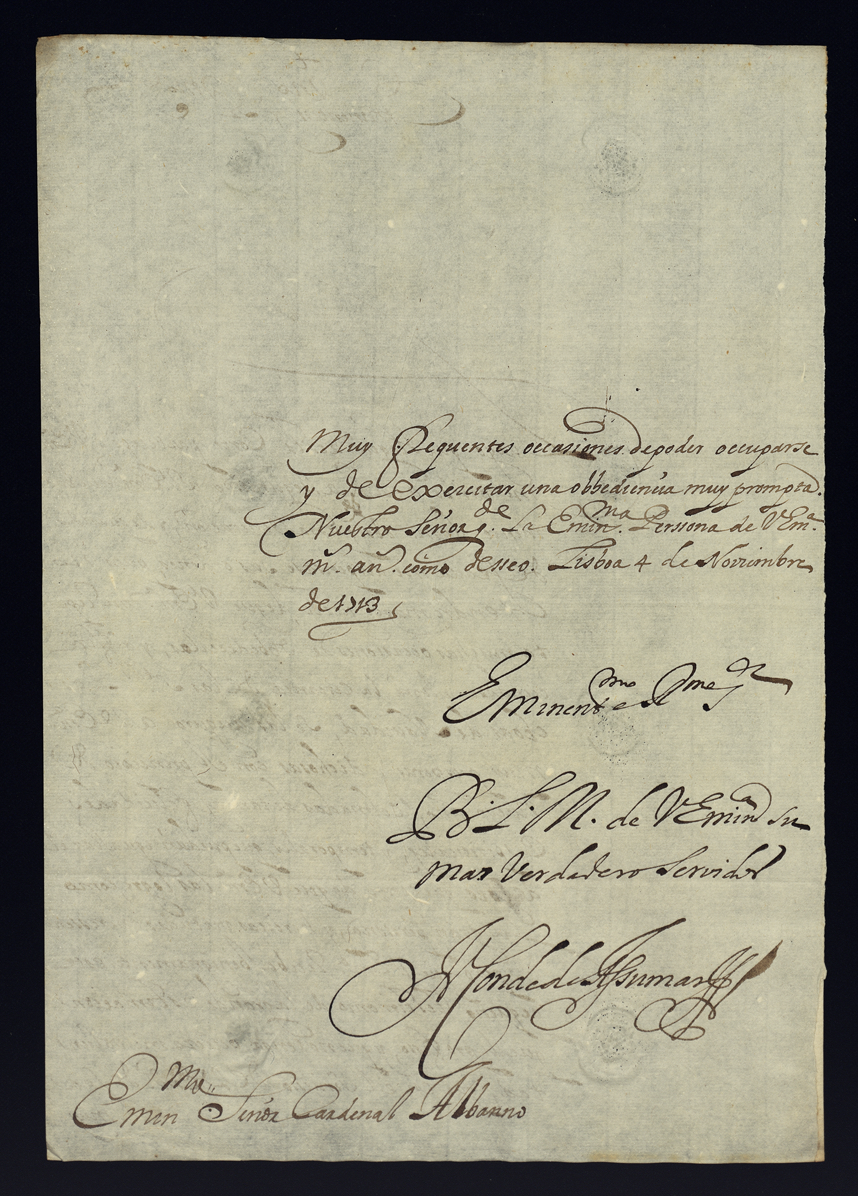 Muy frequentes occasiones de poder occuparse
y de exercitar una obbediencia muy prompta.
Nuestro Señor g.de La Emin.ma Persona de VEm.a
m.s an.s como desseo. Lisboa 4 de Noviembre
de 1713
Eminent.mo e R.mo S.r
B. L. M. de VEmin.a su
mas Verdadero Servidor
Conde de Assumar
Emin.mo Señor Cardenal Albanno